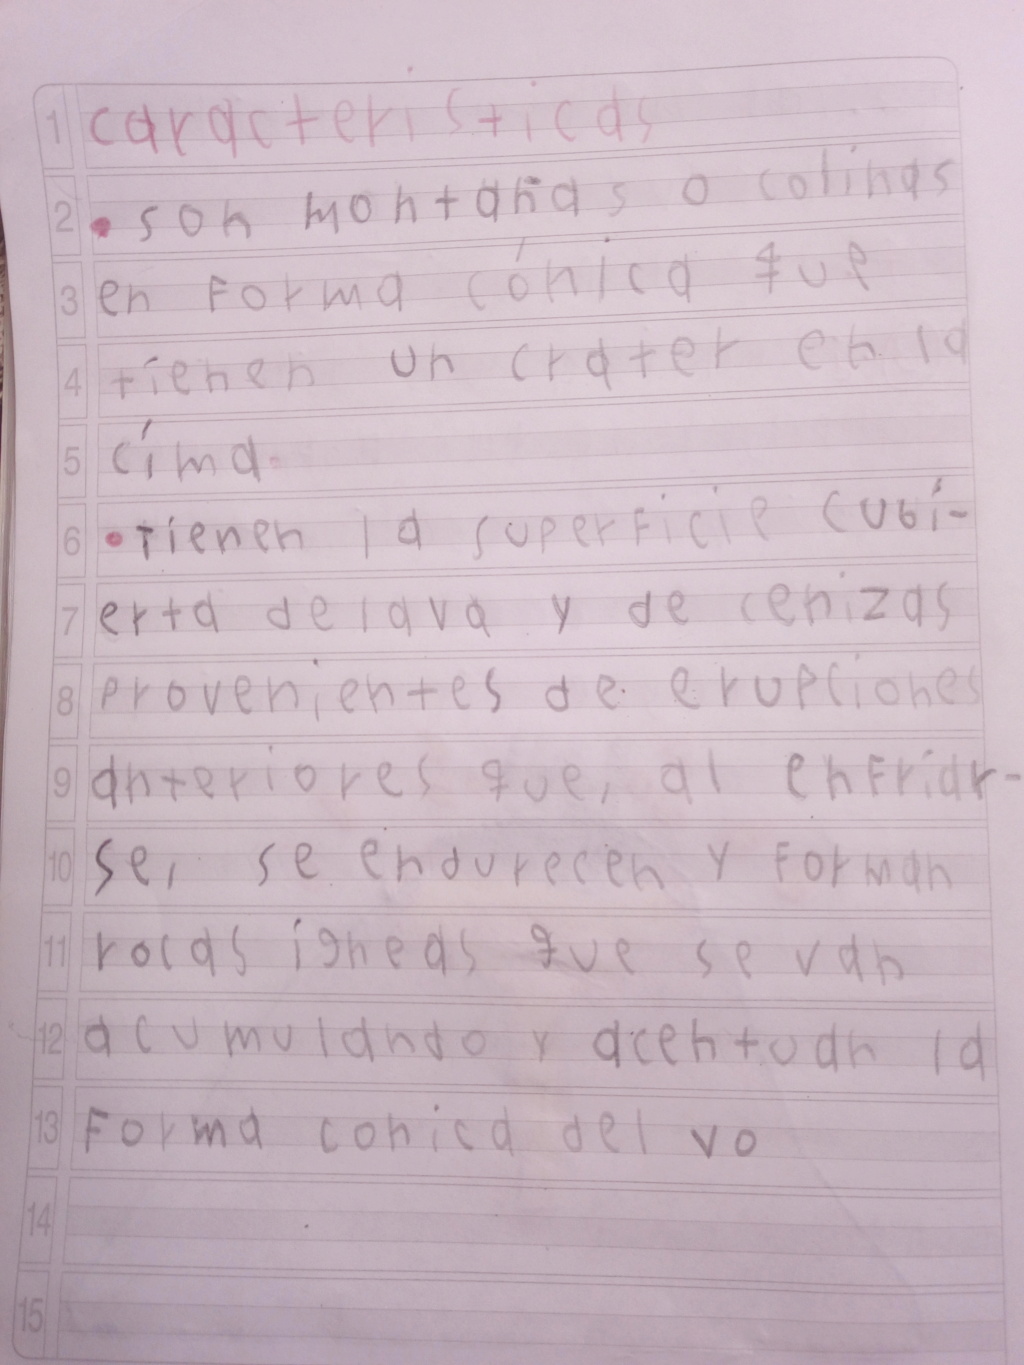 1 caracteristicas
2 • son montañas o colinas
3 en Forma cónica que
4 tienen un crater en la
5 címa.
6 • Tienen la superficie cubí-
7 erta de lava y de cenizas
8 provenientes de erupciones
9 anteriores que, al enfriar-
10 se, se endurecen y Forman
11 rocas igneas que se van
12 acumulando y acentuan la
13 Forma conica del vo
14
15